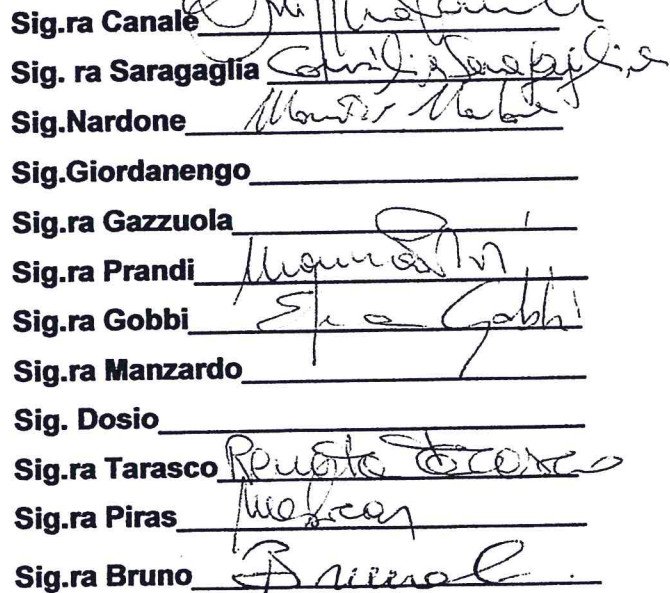 Sig.ra Canale
Sig. ra Saragaglia Saragaglia
Sig.Nardone
Sig.Giordanengo
Sig.ra Gazzuola
Sig.ra Prandi
Sig.ra Gobbi Gobbi
Sig.ra Manzardo
Sig. Dosio
Sig.ra Tarasco Renata Tarasco
Sig.ra Piras
Sig.ra Bruno